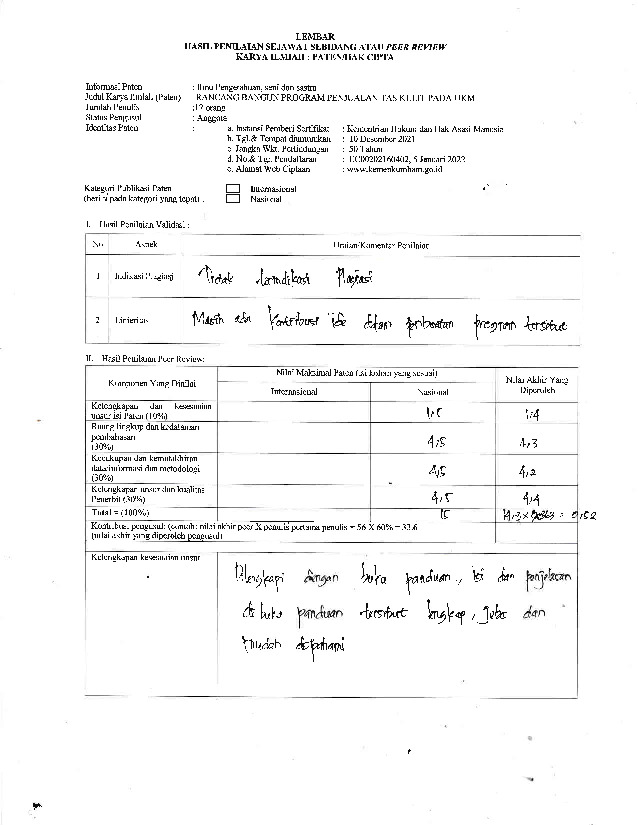 LEMBAR
HASIL PENILAIAN SEJAWAT SEBIDANG ATAU PEER REVIEW
KARYA ILMIAH : PATEN/HAK CIPTA
Informasi Paten : Ilmu Pengetahuan, seni dan sastra
Judul Karya Ilmiah (Paten) : RANCANG BANGUN PROGRAM PENJUALAN TAS KULIT PADA UKM
Jumlah Penulis : 12 orang
Status Pengusul : Anggota
Identitas Paten : a. Instansi Pemberi Sertifikat : Kementrian Hukum dan Hak Asasi Manusia
b. Tgl.& Tempat diumumkan : 10 Desember 2021
c. Jangka Wkt. Perlindungan : 50 Tahun
d. No.& Tgl. Pendaftaran : EC00202160402, 5 Januari 2022
e. Alamat Web Ciptaan : www.kemenkumham.go.id
Kategori Publikasi Paten Internasional
(beri pada kategori yang tepat) : Nasional
I. Hasil Penilaian Validasi :
No Aspek Uraian/Komentar Penilaian
1 Indikasi Plagiasi Tidak Plagiasi
2 Linieritas Masih ada kontribusi ide dalam pembuatan program tersebut
II. Hasil Penilaian Peer Review:
Komponen Yang Dinilai Nilai Maksimal Paten (isi kolom yang sesuai) Nilai Akhir Yang Diperoleh
Internasional Nasional
Kelengkapan dan kesesuaian
unsur isi Paten (10%) 1,5 1,4
Ruang lingkup dan kedalaman
pembahasan
(30%) 4,5 4,3
Kecukupan dan kemutakhiran
data/informasi dan metodologi
(30%) 4,5 4,2
Kelengkapan unsur dan kualitas
Penerbit (30%) 4,5 4,4
Total = (100%) 15 14,3 x
Kontribusi pengusul: (contoh: nilai akhir peer X penulis pertama penulis = 56 X 60% = 33.6
(nilai akhir yang diperoleh pengusul)
Kelengkapan kesesuaian unsur
Dilengkapi dengan buku panduan, isi dan penjelasan
di buku panduan tersebut lengkap, jelas dan
mudah dipahami